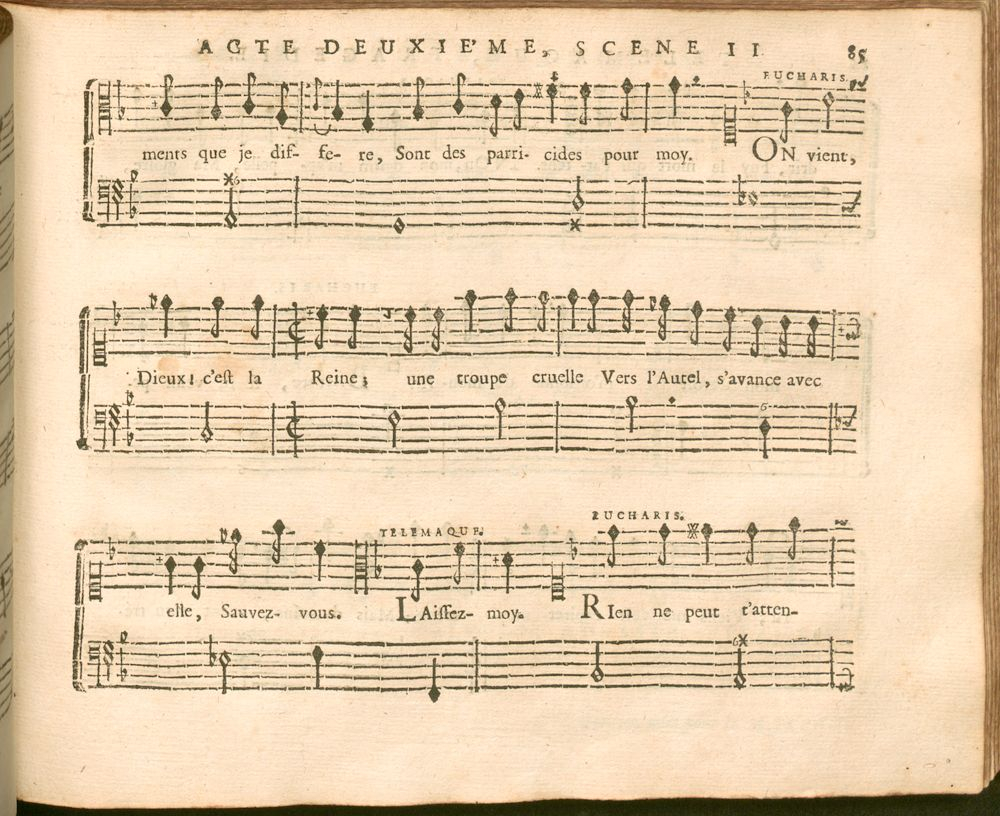 ACTE DEUXIE'ME, SCENE II 85
EUCHARIS.
ments que je dif- fe- re, Sont des parri- cides pour moy. ON vient,
Dieux! c'est la Reine; une troupe cruelle Vers l'Autel, s'avance avec
TELEMAQUE. EUCHARIS.
elle, Sauvez- vous. LAissez- moy. RIen ne peut t'atten-